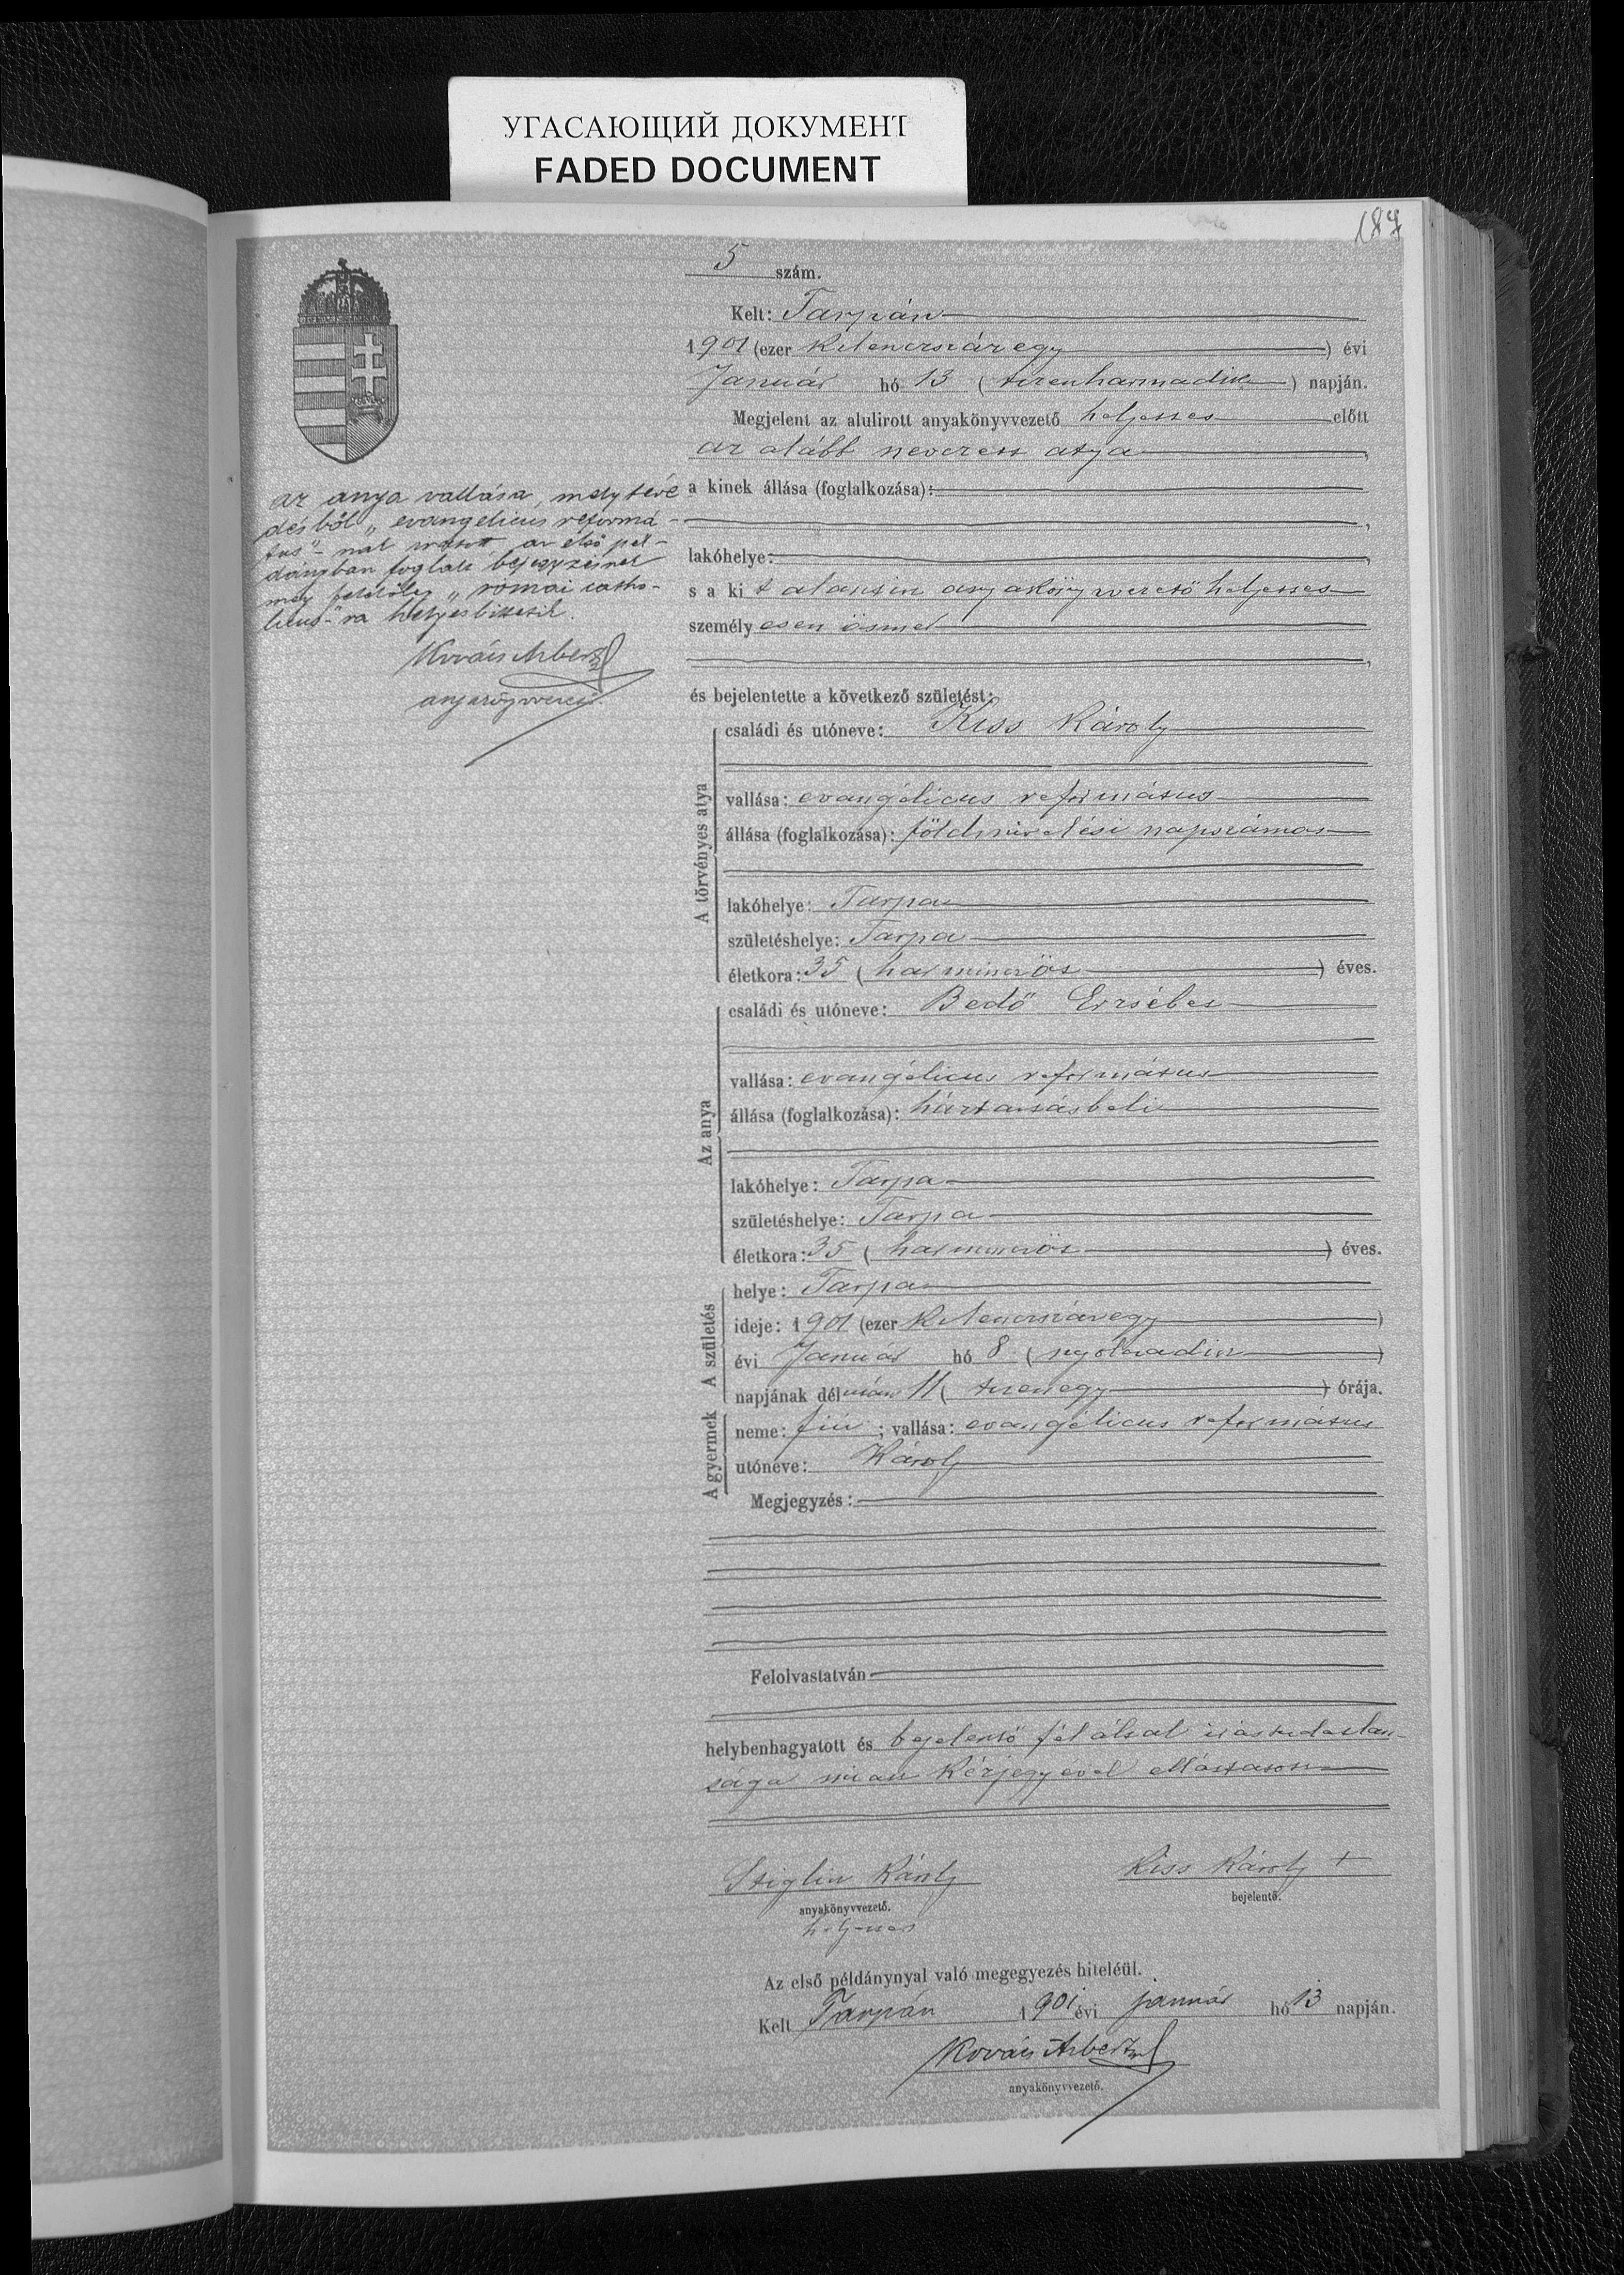 УГАСАЮЩИЙ ДОКУМЕНТ
FADED DOCUMENT
187
5 szám.
Kelt: Tarpán
1901 (ezer kilenczszázegy) évi
Január hó 13 (tizenharmadik) napján.
Megjelent az alulirott anyakönyvvezető helyettes előtt
az alább nevezett atya,
a kinek állása (foglalkozása):
lakóhelye:
s a kit alantirt anyakönyvvezető helyettes
személyesen ösmer
és bejelentette a következő születést:
az anya vallása, mely téve
désből „evangelicus reformá-
tus"-nak iratott az első pél-
dányban foglalt bejegyzésnek
meg felelőleg „római catho-
licus"-ra helyesbittetik.
Kovács Albert
anyakönyvvezető
A törvényes atya
családi és utóneve: Kiss Károly
vallása: evangélicus református
állása (foglalkozása): földmivelési napszámos
lakóhelye: Tarpa
születéshelye: Tarpa
életkora: 35 (harminczöt) éves.
Az anya
családi és utóneve: Bedő Erzsébet
vallása: evangélicus református
állása (foglalkozása): háztartásbeli
lakóhelye: Tarpa
születéshelye: Tarpa
életkora: 35 (harminczöt) éves.
A születés
helye: Tarpa
ideje: 1901 (ezer kilenczszázegy)
évi Január hó 8 (nyolczadik)
napjának délután 11 (tizenegy) órája.
A gyermek
neme: fiú; vallása: evangélicus református
utóneve: Károly
Megjegyzés:
Felolvastatván
helybenhagyatott és bejelentő fél által irástudatlan-
sága miatt kézjegyével elláttatott
Stiglin Károly
anyakönyvvezető.
helyettes
Kiss Károly +
bejelentő.
Az első példánynyal való megegyezés hiteléül.
Kelt Tarpán 1901 évi január hó 13 napján.
Kovács Albert
anyakönyvvezető.